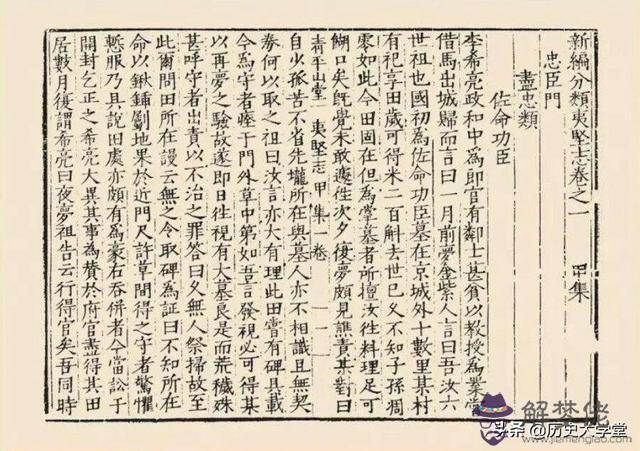 新編分類夷堅志卷之一　甲集
忠臣門
盡忠類
佐命功臣
李希亮政和中為郎官有鄰士甚貧以教授為業常
借馬出城歸而言曰一月前夢金紫人言曰吾汝六
世祖也國初為佐命功臣墓在京城外十數里某村
有祀享田歲可得米二百斛去世已久不知子孫凋
零如此今田固在但為掌墓者所擅汝往料理足可
餬口矣既覺未敢遽往次夕復夢頗見譙責其對曰
清平山堂　夷堅志　甲集一卷　一
自少孤苦不省先壠所在與墓人亦不相識且無契
券何以取之祖曰汝言亦大有理此田嘗有碑具載
今為守者瘞于門外草中第如吾言發視必可得某
以再夢之驗故遂即日往視有大墓良是而荒穢殊
甚呼守者出責以不治之罪答曰久無人祭掃故至
此爾問田所在謾云無之令取碑為証曰不知所在
命以鍬鋪劚地果於近門尺許草間得之守者驚懼
慙服乃具說田虞亦頗有為豪右吞併者今當訟于
開封乞正之希亮大異其事為贊於府官盡得其田
居數月復謂希亮曰夜夢祖告云行得官矣吾同時
解梦佬
www.jiemenglao.com
头条 @历史大学堂